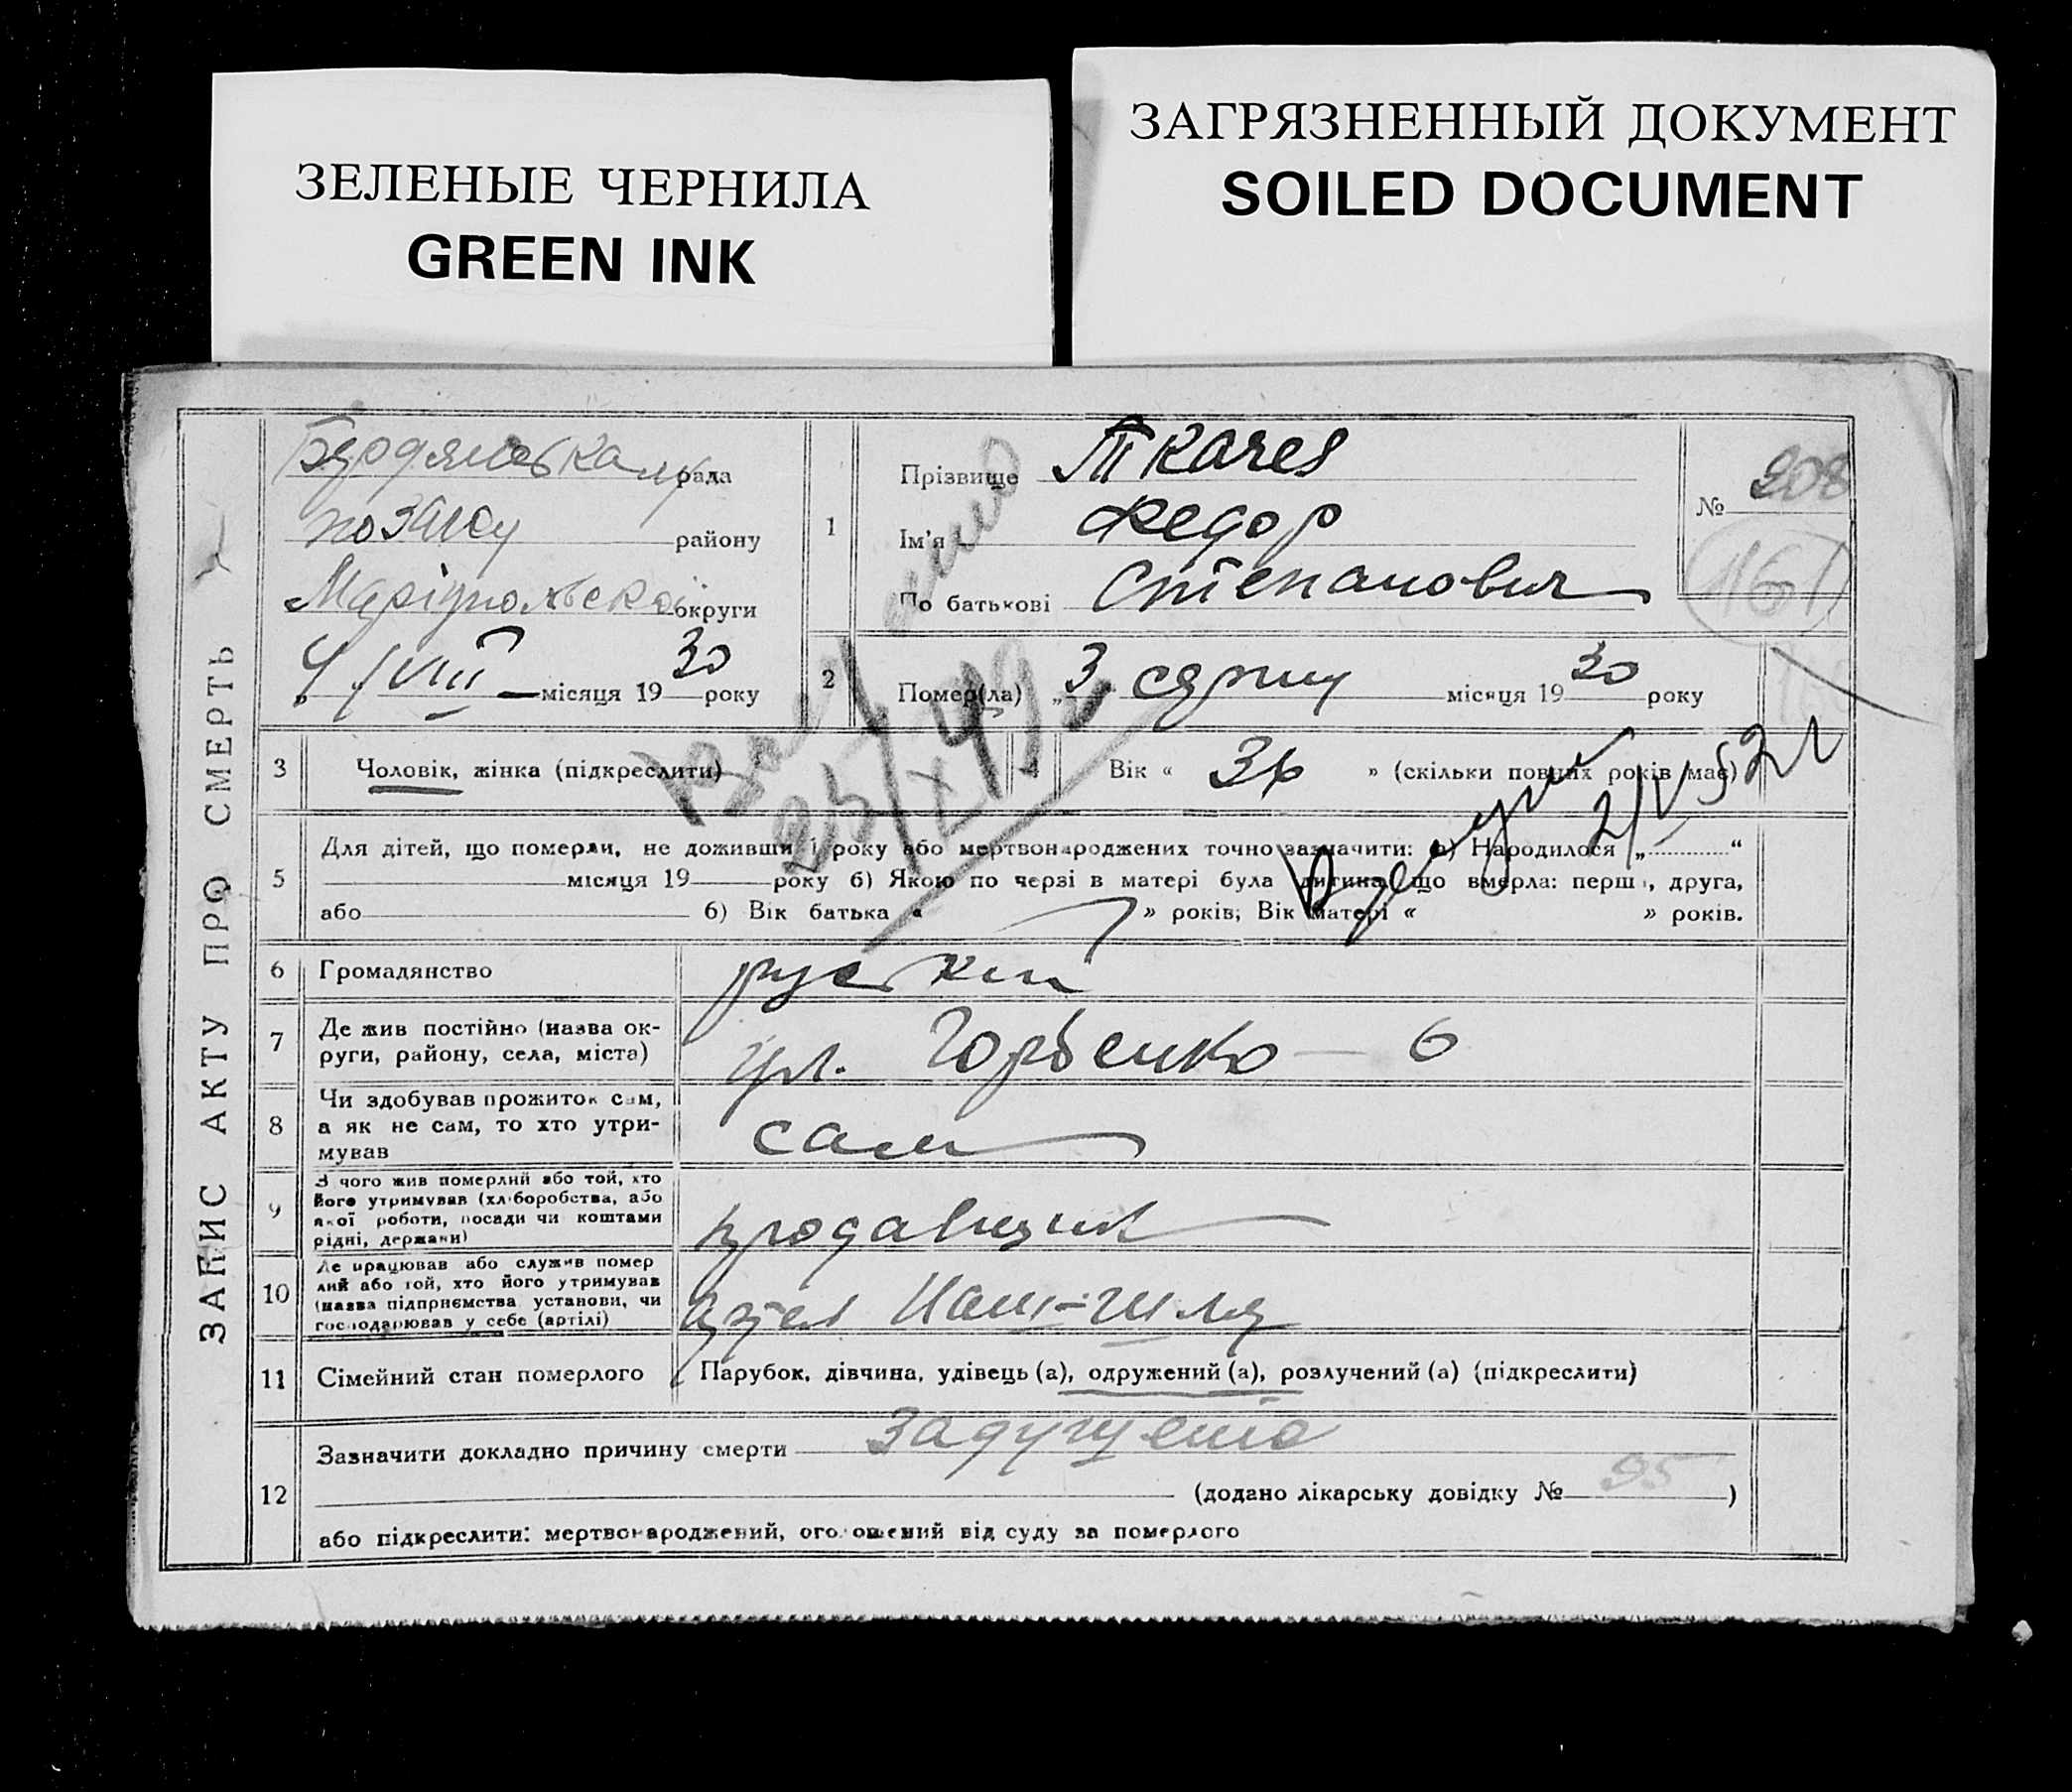 ЗЕЛЕНЫЕ ЧЕРНИЛА
GREEN INK
ЗАГРЯЗНЕННЫЙ ДОКУМЕНТ
SOILED DOCUMENT
ЗАПИС АКТУ ПРО СМЕРТЬ
Бердянська рада
району
Маріупольської округи
4/VIII місяця 1930 року
1
Прізвище Ткачев
Ім'я Федор
По батькові Степанович
№ 208
2
Помер(ла) „3„ серпня місяця 1930 року
3
Чоловік, жінка (підкреслити)
4
Вік « 36 » (скільки повних років має)
25/X 49
2/V 52 г
5
Для дітей, що померли, не доживши 1 року або мертвонароджених точно зазначити: а) Народилося „ “
місяця 19 року б) Якою по черзі в матері була дитина, що вмерла: перша, друга,
або б) Вік батька « » років; Вік матері « » років.
6
Громадянство
руский
7
Де жив постійно (назва ок-
руги, району, села, міста)
ул. Горбенко — 6
8
Чи здобував прожиток сам,
а як не сам, то хто утри-
мував
сам
9
З чого жив померлий або той, хто
його утримував (хліборобства, або
якої роботи, посади чи коштами
рідні, держави)
продавщик
10
Де працював або служив помер
лий або той, хто його утримував
(назва підприємства установи, чи
господарював у себе (артілі)
11
Сімейний стан померлого
Парубок, дівчина, удівець (а), одружений (а), розлучений (а) (підкреслити)
12
Зазначити докладно причину смерти
(додано лікарську довідку № 95 )
або підкреслити: мертвонароджений, оголошений від суду за померлого